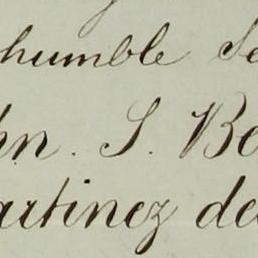 humble Se
hn. S. Bo
artinez de